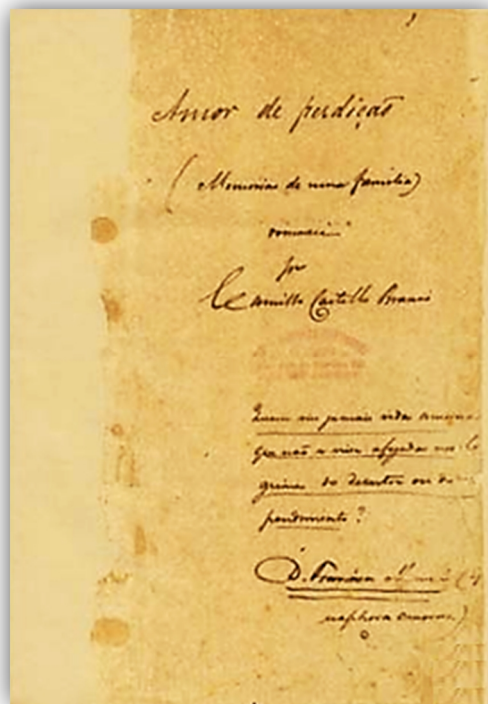 Amor de perdição
(Memorias de uma familia)
romance
por
Camillo Castello Branco
Quem viu jamais vida
que não a visse afogada nas la
grimas do desastre ou do
pendimento?
D. Francisco
naphora amorosa)